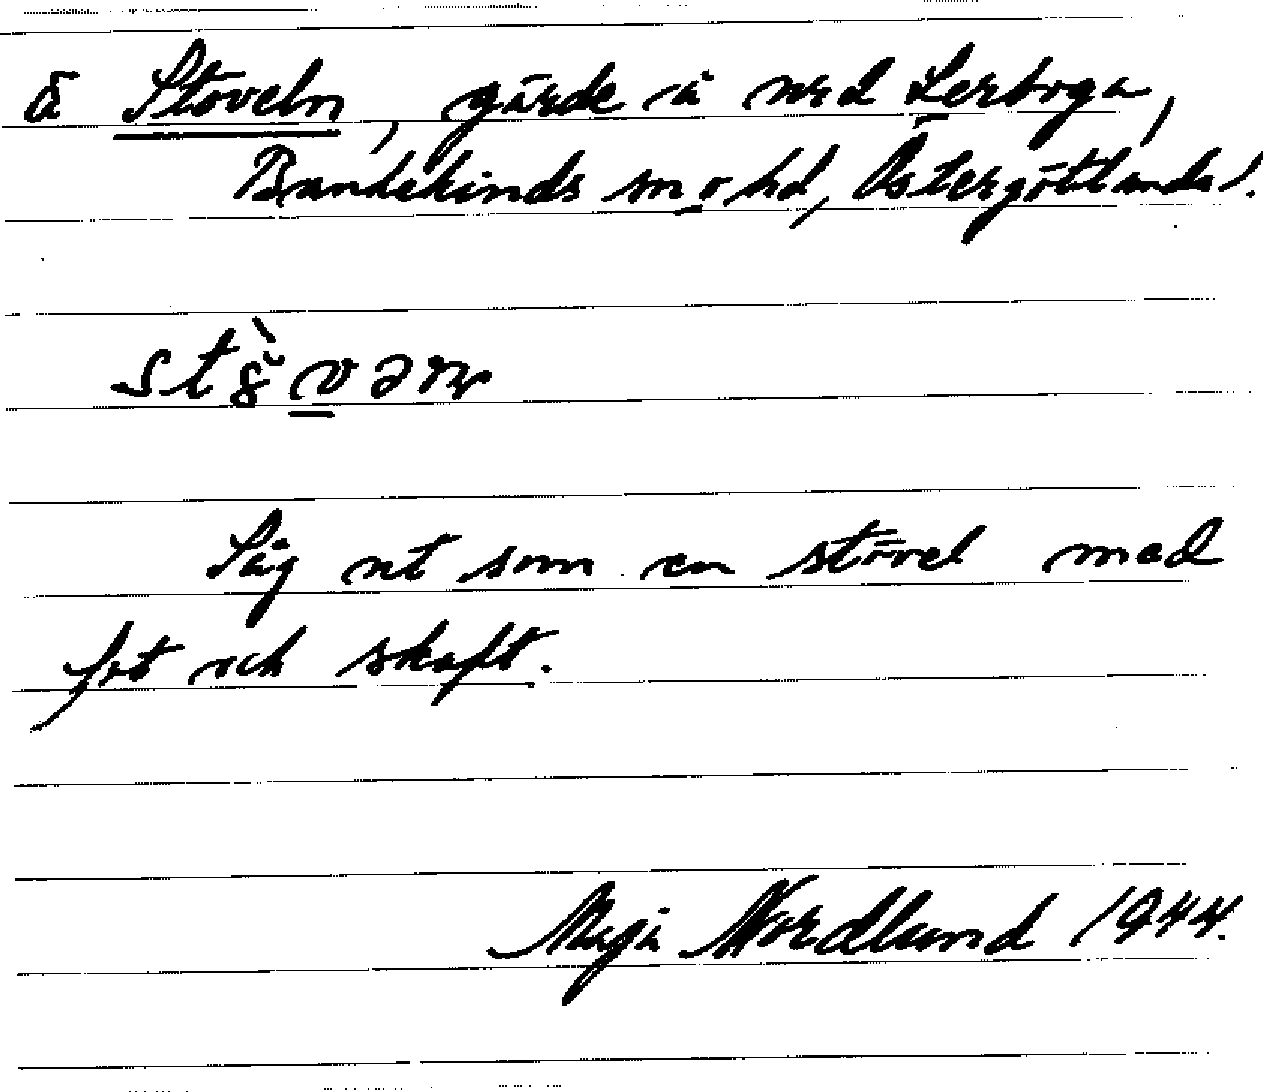 ä Stöveln, gärde å ned Lerboga,
Bankekinds sn o hd, Östergötlands l.
Såg ut som en stövel med
fot och skaft.
Maja Nordlund 1944.